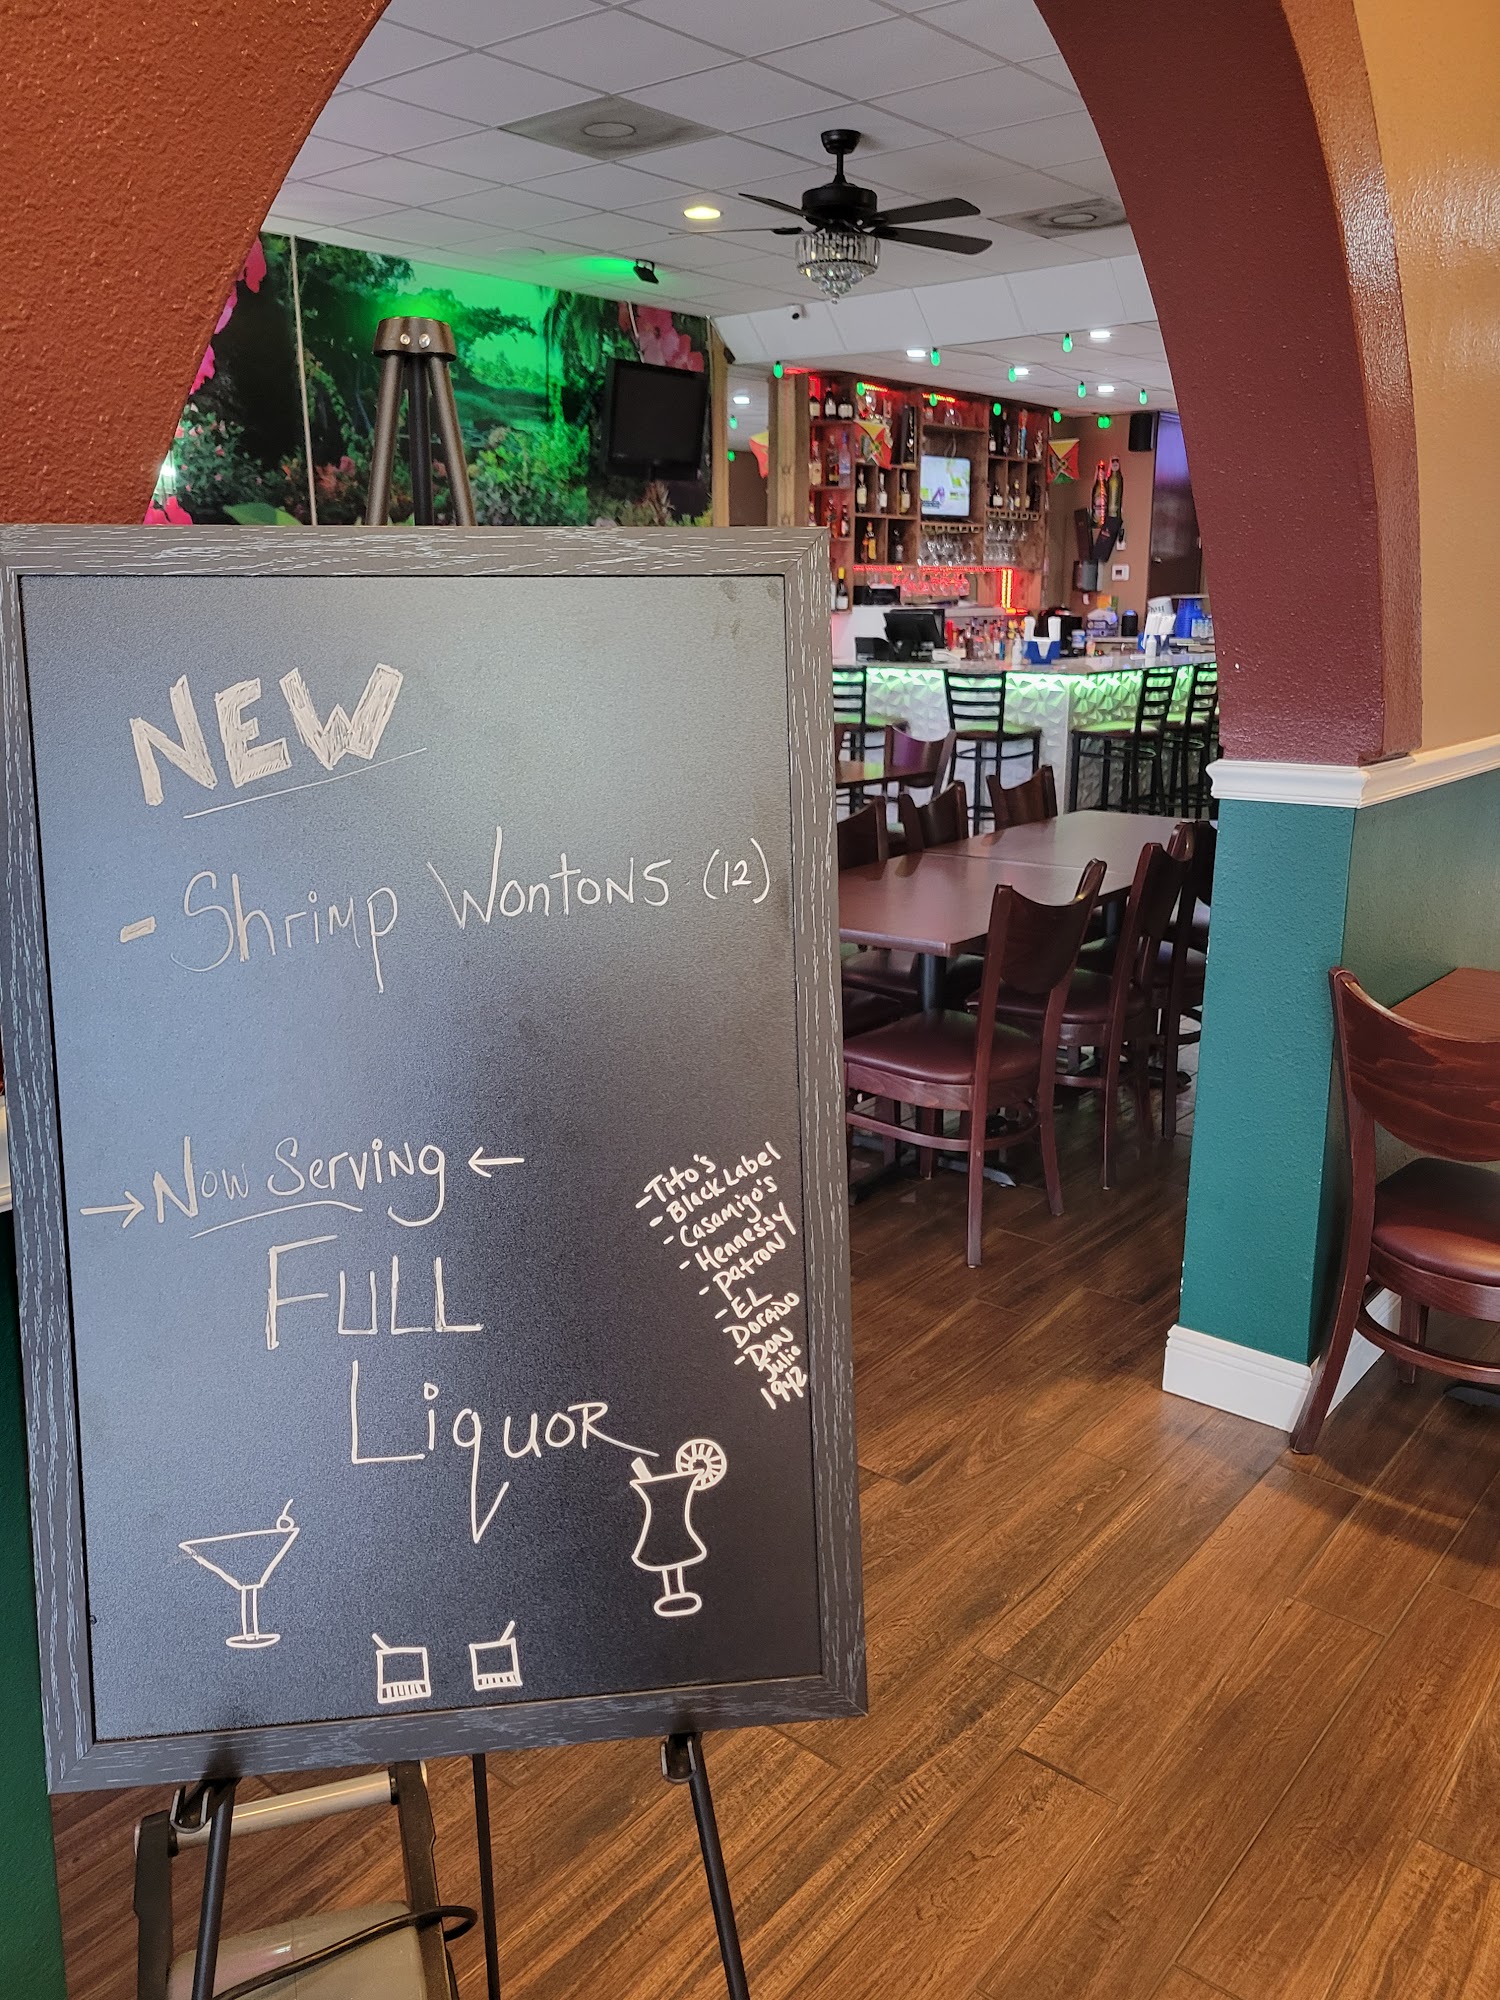 NEW
- Shrimp Wontons (12)
→ Now Serving ←
Full
Liquor
- Tito's
- Black Label
- Casamigo's
- Hennessy
- Patron
- EL
Dorado
- Don
Julio
1942